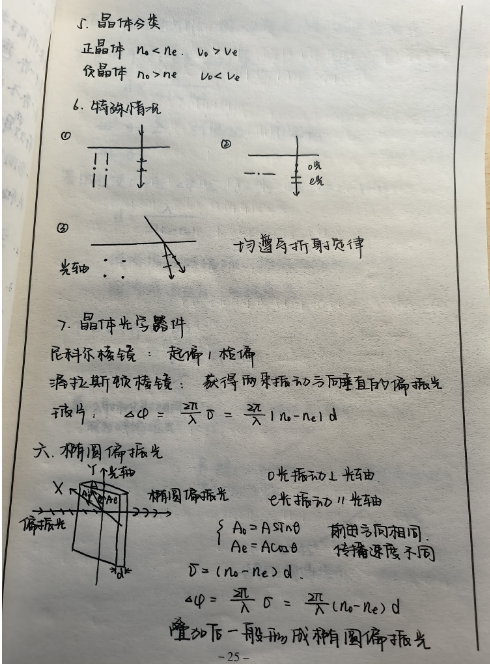 5. 晶体分类
正晶体 no<ne. vo>ve
负晶体 no>ne vo<ve
6. 特殊情况
①
②
o光
e光
③
光轴
均遵与折射定律
7. 晶体光学器件
尼科尔棱镜: 起偏, 检偏
渥拉斯顿棱镜: 获得两束振动方向垂直的偏振光
波片: Δφ = 2π/λ δ = 2π/λ |no-ne|d
六、椭圆偏振光
Y 光轴
X
A
Ae
偏振光
椭圆偏振光
d
o光振动⊥光轴
e光振动∥光轴
{ Ao=Asinθ 前进方向相同.
Ae=Acosθ 传播速度不同
δ=(no-ne)d.
Δφ = 2π/λ δ = 2π/λ (no-ne)d
叠加后一般形成椭圆偏振光
-25-